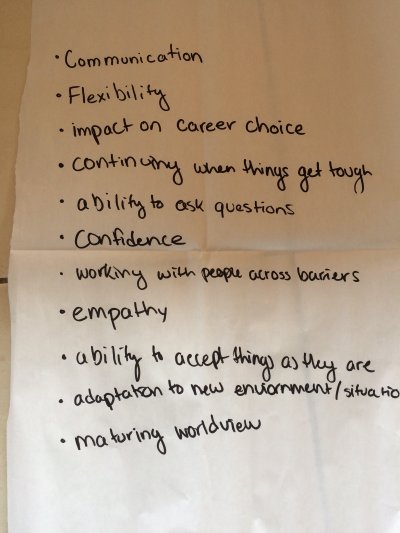 • Communication
• Flexibility
• impact on career choice
• continuing when things get tough
• ability to ask questions
• confidence
• working with people across barriers
• empathy
• ability to accept things as they are
• adaptation to new enviornment/situatio
• maturing worldview